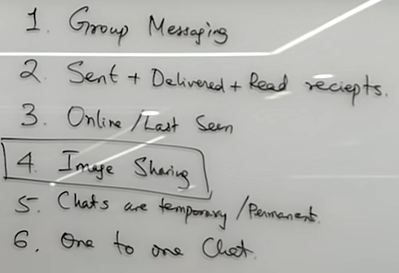 1. Group Messaging
2. Sent + Delivered + Read reciepts.
3. Online / Last Seen
4. Image Sharing
5. Chats are temporary / Permanent.
6. One to one Chat.